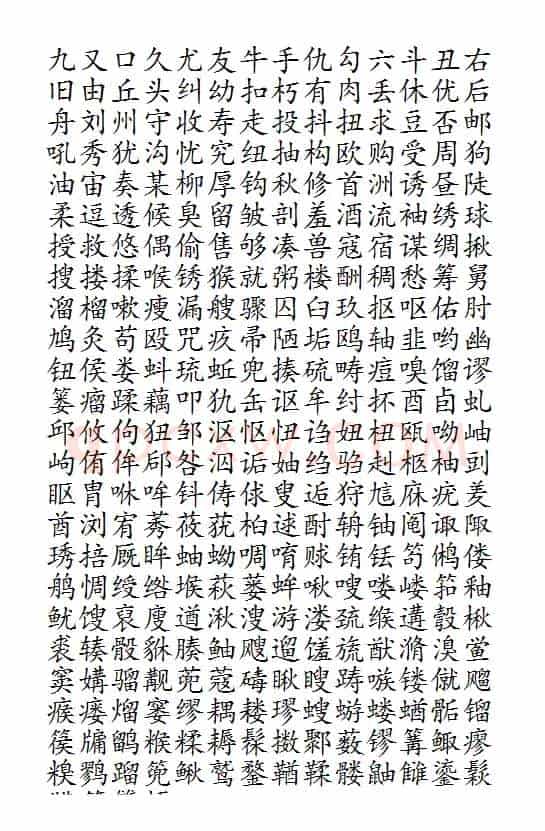 九又口久尤友牛手仇勾六斗丑右
旧由丘头纠幼扣朽有肉丢休优后
舟刘州守收寿走投抖扭求豆否邮
吼秀犹沟忧究纽抽构欧购受周狗
油宙奏某柳厚钩秋修首洲诱昼陡
柔逗透候臭留皱剖羞酒流袖绣球
授救悠偶偷售够凑兽寇宿谋绸揪
搜搂揉喉锈猴就粥楼酬稠愁筹舅
溜榴嗽瘦漏艘骤囚臼玖抠呕佑肘
鸠灸苟殴咒疚帚陋垢鸥轴韭哟幽
钮侯娄蚪琉蚯兜揍硫畴痘嗅馏谬
篓瘤蹂藕叩犰缶讴牟纣抔酉卣虬
邱攸佝狃邹沤怄忸诌妞杻瓯呦岫
岣侑侔郈咎泅诟妯绉驺赳枢柚剅
眍胄咻哞钭俦俅叟逅狩訄庥疣羑
酋浏宥莠莜莸桕逑酎辀铀阄诹陬
琇掊厩眸蚰蚴啁唷赇铕铥笱鸺偻
鸼惆绶绺堠萩蒌蛑啾嗖喽嵝筘釉
鱿馊裒廋遒湫溲游溇巯缑遘彀楸
裘辏骰貅腠鲉飕遛馐旒猷滫溴訾
窦媾骝觏蔸蔻碡瞅瞍踌嗾镂僦飗
瘊瘘熘窭缪耦耧璆螋蝣蝼蝤骺镏
篌牖鹠糇糅耨髹擞鄹薮镠篝鲰瘳
糗鹨蹓篼鳅鹫鍪鞧鞣髅鼬雠鎏鬏